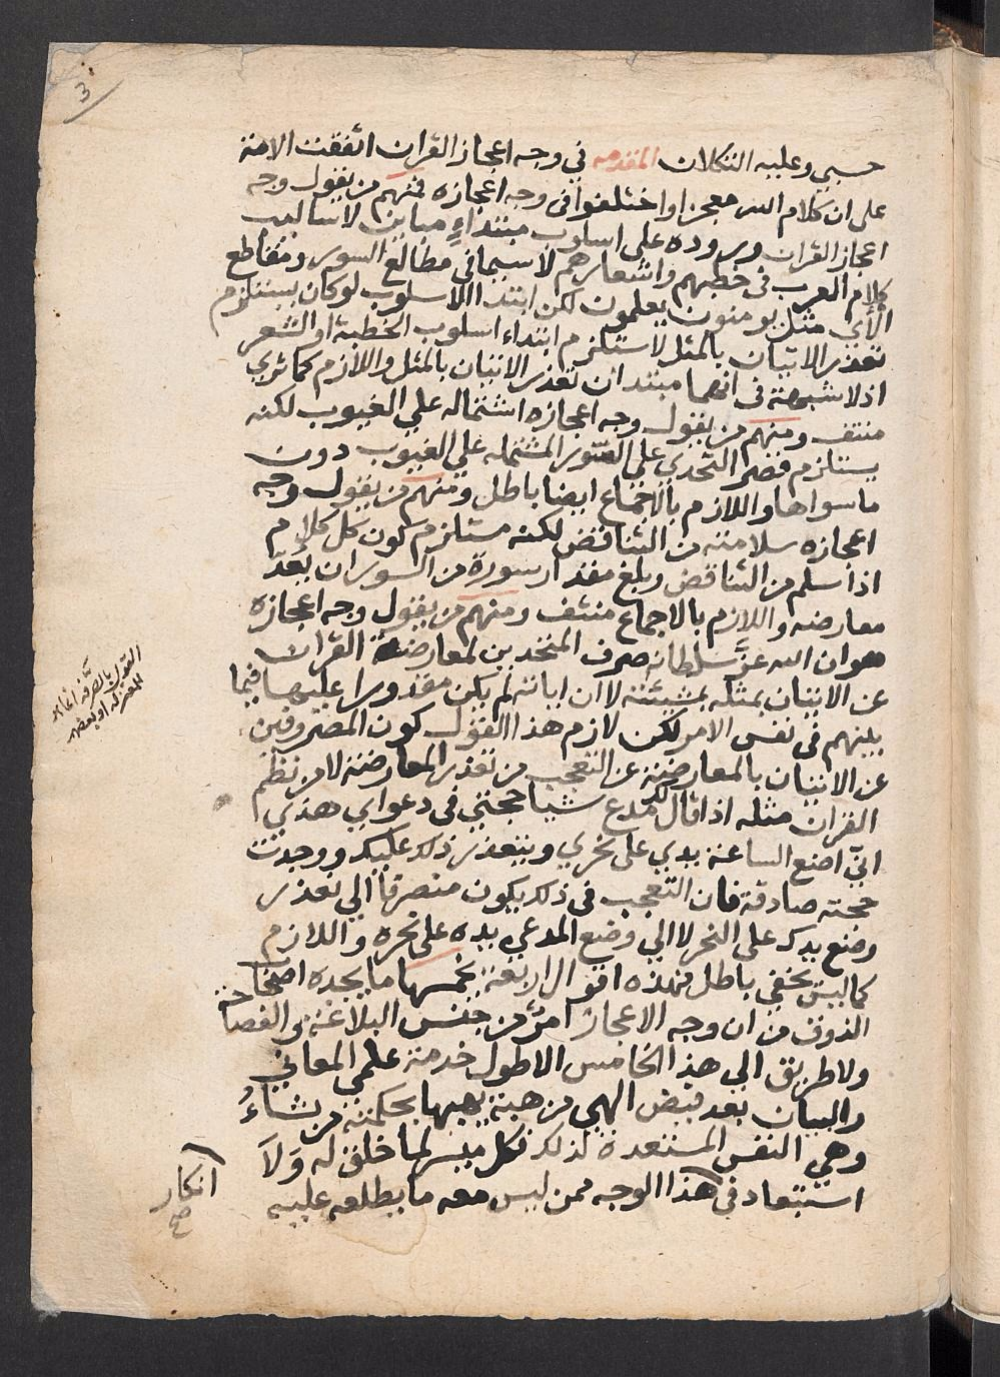 3
حسبي وعليه التكلان المقدمه في وجه اعجاز القران اتفقت الامة
على ان كلام الله معجز واختلفوا في وجه اعجازه فمنهم من يقول وجه
اعجاز القران وروده على اسلوب مبتداء مباين لاساليب
كلام العرب في خطبهم واشعارهم لاسيما في مطالع السور ومقاطع
الآي مثل يومنون يعلمون لكن ابتداا الاسلوب لو كان يستلزم
تعذر الاتيان بالمثل لاستلزم ابتداء اسلوب الخطبة او الشعر
اذ لا شبهة في انهما مبتدان تعذر الاتيان بالمثل واللازم كما تري
منتف ومنهم من يقول وجه اعجازه اشتماله علي الغيوب لكنه
يستلزم قصر التحدي على السور المشتمله علي الغيوب دون
ما سواها واللازم بالاجماع ايضا باطل ومنهم من يقول وجه
اعجازه سلامته من التناقض لكنه مستلزم كون كل كلام
اذا سلم من التناقض وبلغ مقدار سورة من السور ان يعدّ
معارضه واللازم بالاجماع منتف ومنهم من يقول وجه اعجازه
هو ان الله عزّ سلطانه صرف المتحدين لمعارضة القران
عن الاتيان بمثله بمشيئته لا ان اياته لم يكن مقدورا عليها فيما
بينهم في نفس الامر لكن لازم هذا القول كون المصروفين
عن الاتيان بالمعارضة عن التعجب من تعذر المعارضة لا من نظم
القران مثله اذا قال لك مدع شيا حجتي في دعواي هذي
انّي اصنع الساعة يدي على نحري ويتعذر ذلك عليك ووجدت
حجته صادقة فان التعجب في ذلك يكون منصرفا الي تعذر
وضع يدك على النحر لا الي وضع المدعي يده على نحره واللازم
كما ليس بخفي باطل فهذه اقوال اربعة يخمسها ما يجده اصحاب
الذوق من ان وجه الاعجاز امرٌ من جنس البلاغة والفصاحة
ولا طريق الي هذا الخامس الا طول خدمة علمي المعاني
والبيان بعد فيض الهي من هبة يهبها بحكمته من يشاءُ
وهي النفس المستعدة لذلك فكل ميسر لما خلق له وَلاَ
استبعاد في هذا الوجه ممن ليس معه ما يطلعه عليه
انكار
صح
القول بالصرفه
للمعتزله او بعضهم